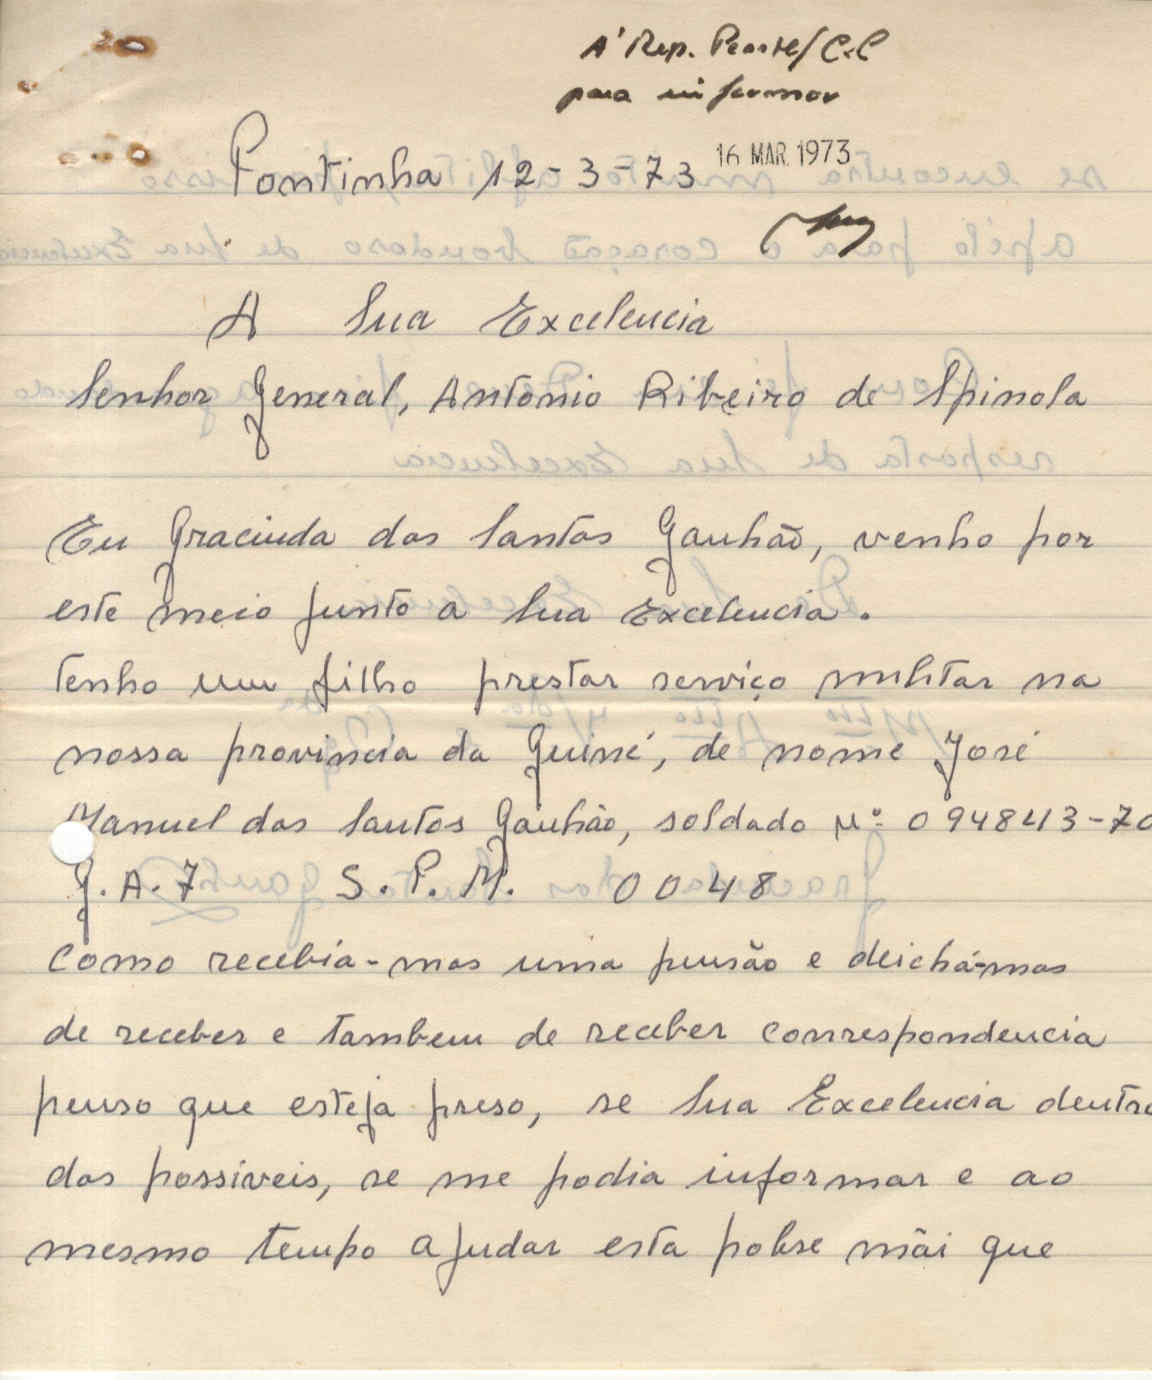 A' Rep.
para informar
Pontinha 12-3-73 16 MAR. 1973
A Sua Excelencia
Senhor General, António Ribeiro de Spinola
Eu Gracinda dos Santos Ganhão, venho por
este meio junto a Sua Excelencia.
tenho um filho prestar serviço militar na
nossa provincia da Guiné, de nome José
Manuel dos Santos Ganhão, soldado Nº 094843-70
G.A.7 S.P.M. 0048
como recebia-mos uma pensão e deichá-mos
de receber e tambem de receber correspondencia
penso que esteja preso, se Sua Excelencia dentro
dos possiveis, se me podia informar e ao
mesmo tempo ajudar esta pobre mãi que